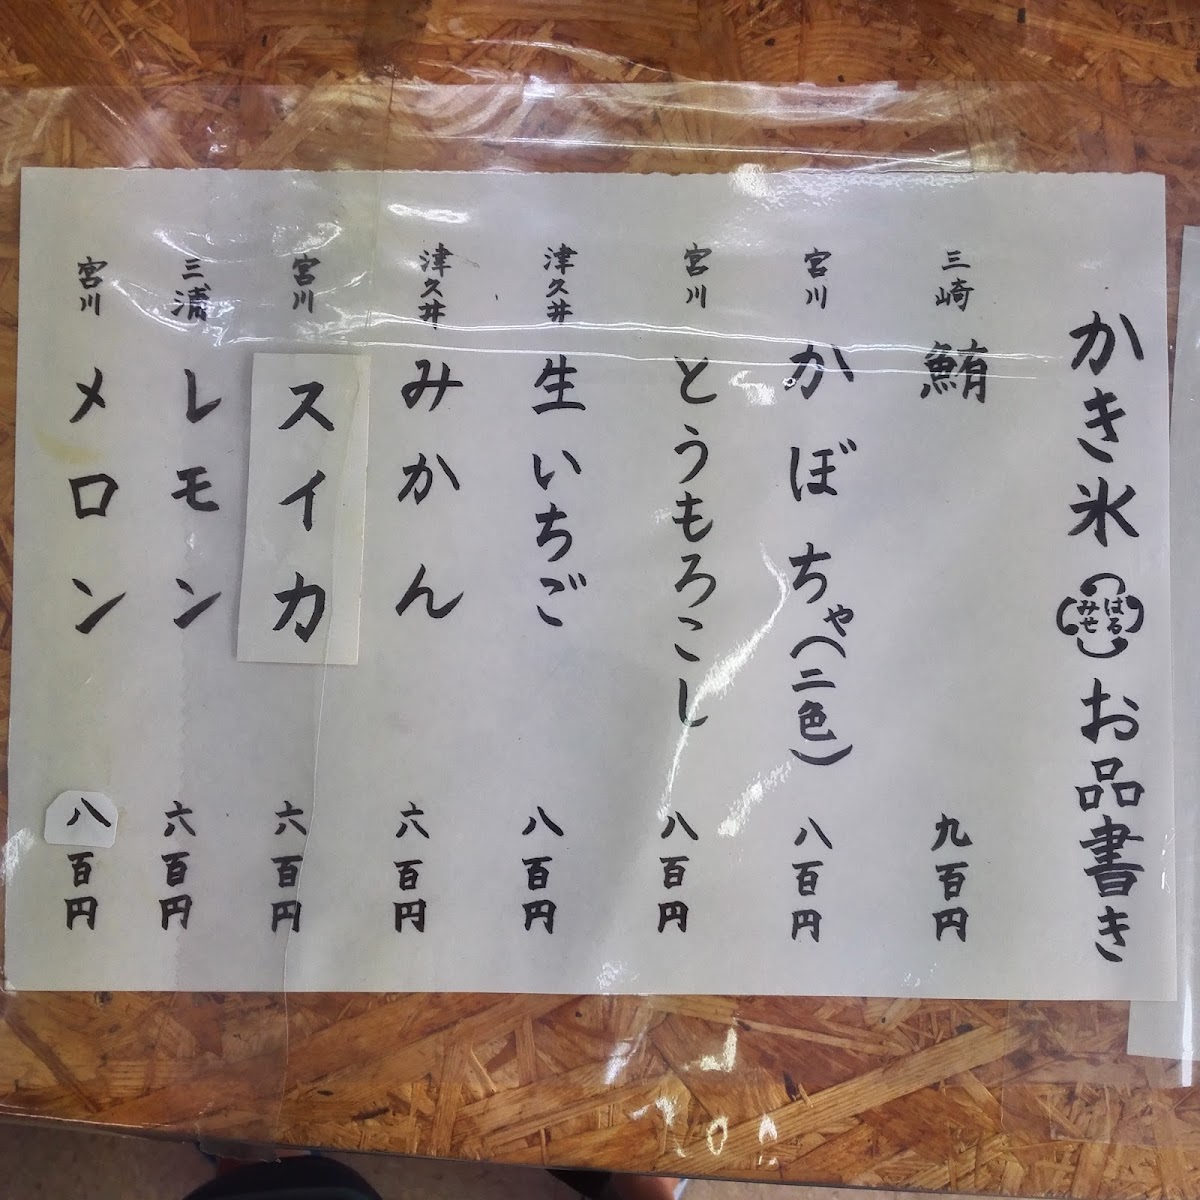 かき氷 はるみせ お品書き
三崎 鮪 九百円
宮川 かぼちゃ(二色) 八百円
宮川 とうもろこし 八百円
津久井 生いちご 八百円
津久井 みかん 六百円
宮川 スイカ 六百円
三浦 レモン 六百円
宮川 メロン 八百円